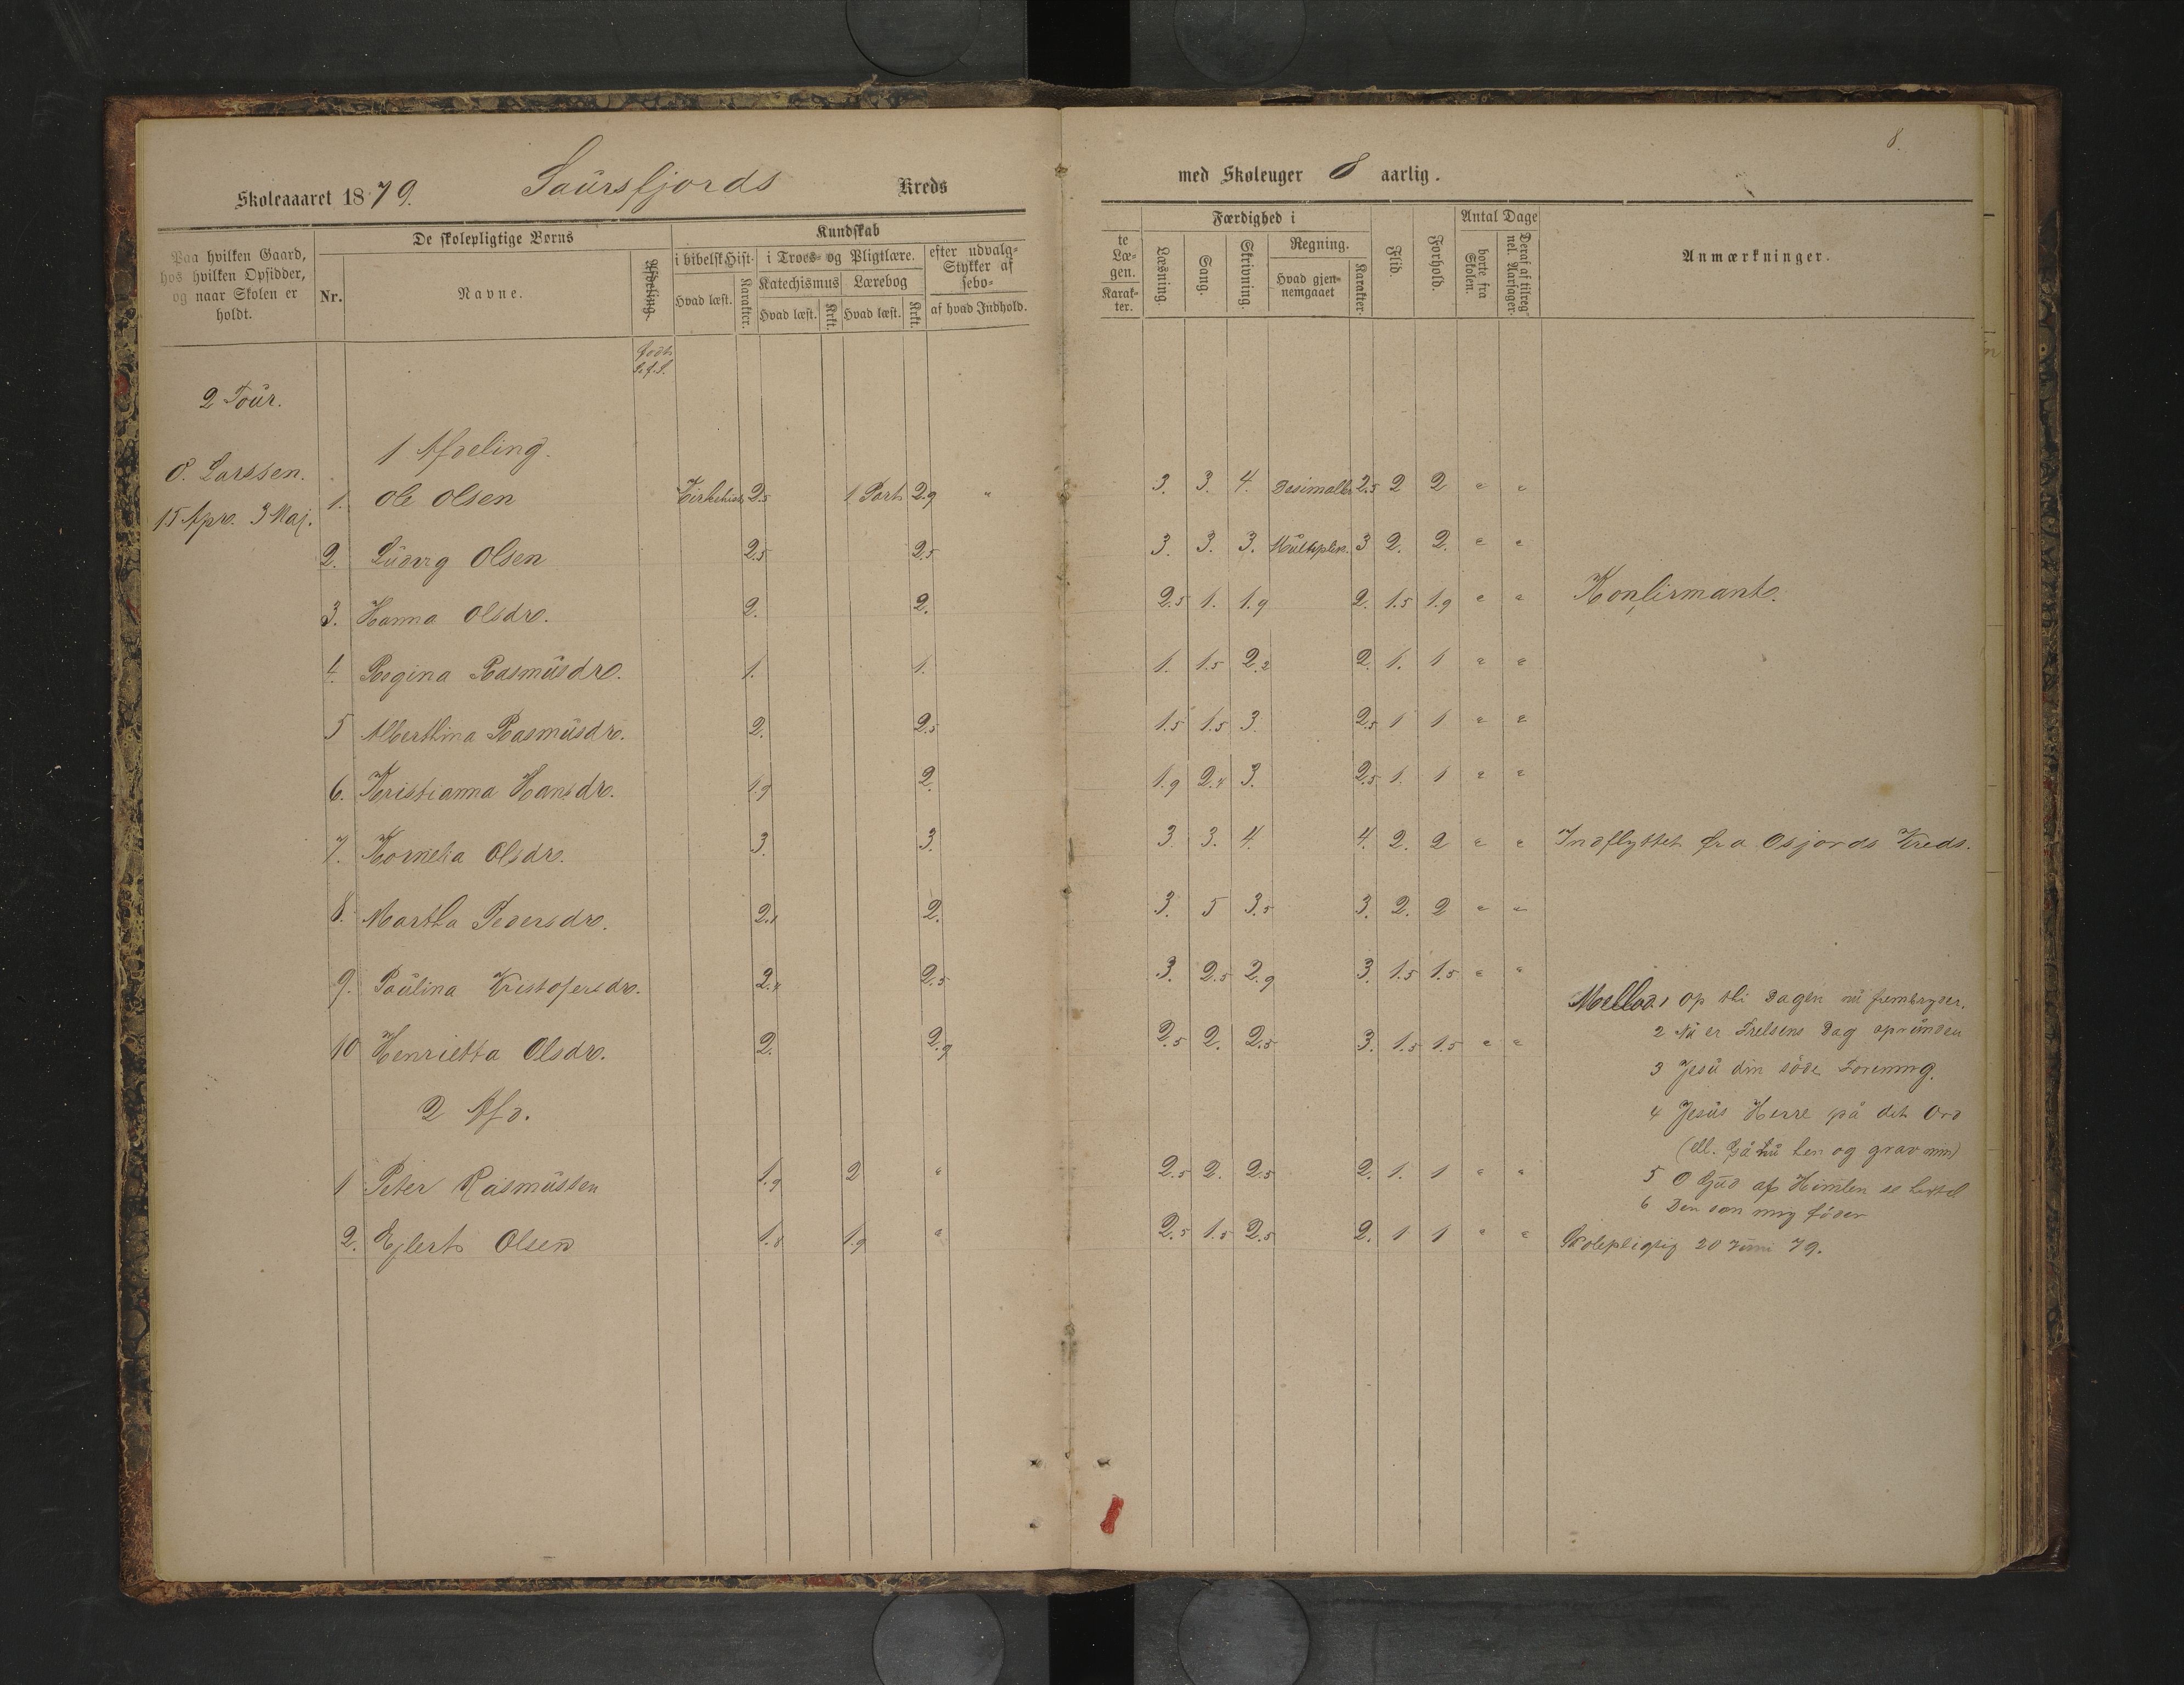 8.
Skoleaaaret 1879. Saursfjords Kreds
med Skoleuger 8 aarlig.
Paa hvilken Gaard, hos hvilken Opsidder, og naar Skolen er holdt.
De skolepligtige Børns
Nr.
Navne.
Afdeling.
Kundskab
i bibelsk Hist.
Hvad læst.
Karakter.
i Troes- og Pligtlære.
Katechismus
Hvad læst.
Krkt.
Lærebog
Hvad læst.
Krkt.
efter udvalg-
Stykker af
sebo-
af hvad Indhold.
te
Læ-
gen.
Karak-
ter.
Færdighed i
Læsning.
Sang.
Skrivning.
Regning.
Hvad gjen-
nemgaaet
Karakter.
Flid.
Forhold.
Antal Dage
borte fra Skolen.
Deraf af tilreg-
nel. Aarsager.
Anmærkninger.
2 Tour.
1 Afdeling.
O. Larssen.
15 Apr. 3 Maj.
1. Ole Olsen Kirkehist 2.5 1 Part 2.9 " 3. 3. 4. Desimalbr 2.5 2 2 " "
2. Ludvig Olsen 2.5 2.5 3. 3. 3. Multiplik. 3 2. 2. " "
3. Hanna Olsdr. 2. 2. 2.5 1. 1.9 2. 1.5 1.9 " " Konfirmant.
4. Regina Rasmusdr. 1. 1. 1. 1.5 2.2 2. 1. 1 " "
5 Alberthina Rasmusdr. 2. 2.5 1.5 1.5 3. 2.5 1 1 " "
6. Kristianna Hansdr. 1.9 2. 1.9 2.4 3. 2.5 1. 1 " "
7. Kornelia Olsdr. 3. 3. 3 3. 4. 4. 2. 2 " " Indflyttet fra Osjords Kreds.
8. Martha Pedersdr. 2.1 2. 3. 5 3.5 3. 2. 2 " "
9. Paulina Kristofersdr. 2.4 2.5 3. 2.5 2.9 3. 1.5 1.5 " "
Mellod. 1 Op thi Dagen nu frembryder.
2 Nu er Frelsens Dag oprunden
10 Henrietta Olsdr. 2. 2.9 2.5 2. 2.5 3. 1.5 1.5 " "
3 Jesu din söde Forening.
2 Afd.
4 Jesus Herre på dit Ord
(ell. Gå nu hen og grav min)
1 Peter Rasmussen 1.9 2 " 2.5 2. 2.5 2. 1. 1 " "
5 O Gud af Himlen se hertil
6 Den som mig föder
2. Ejlert Olsen 1.8 1.9 " 2.5 1.5 2.5 2. 1 1 " " Skolepligtig 20 Juni 79.